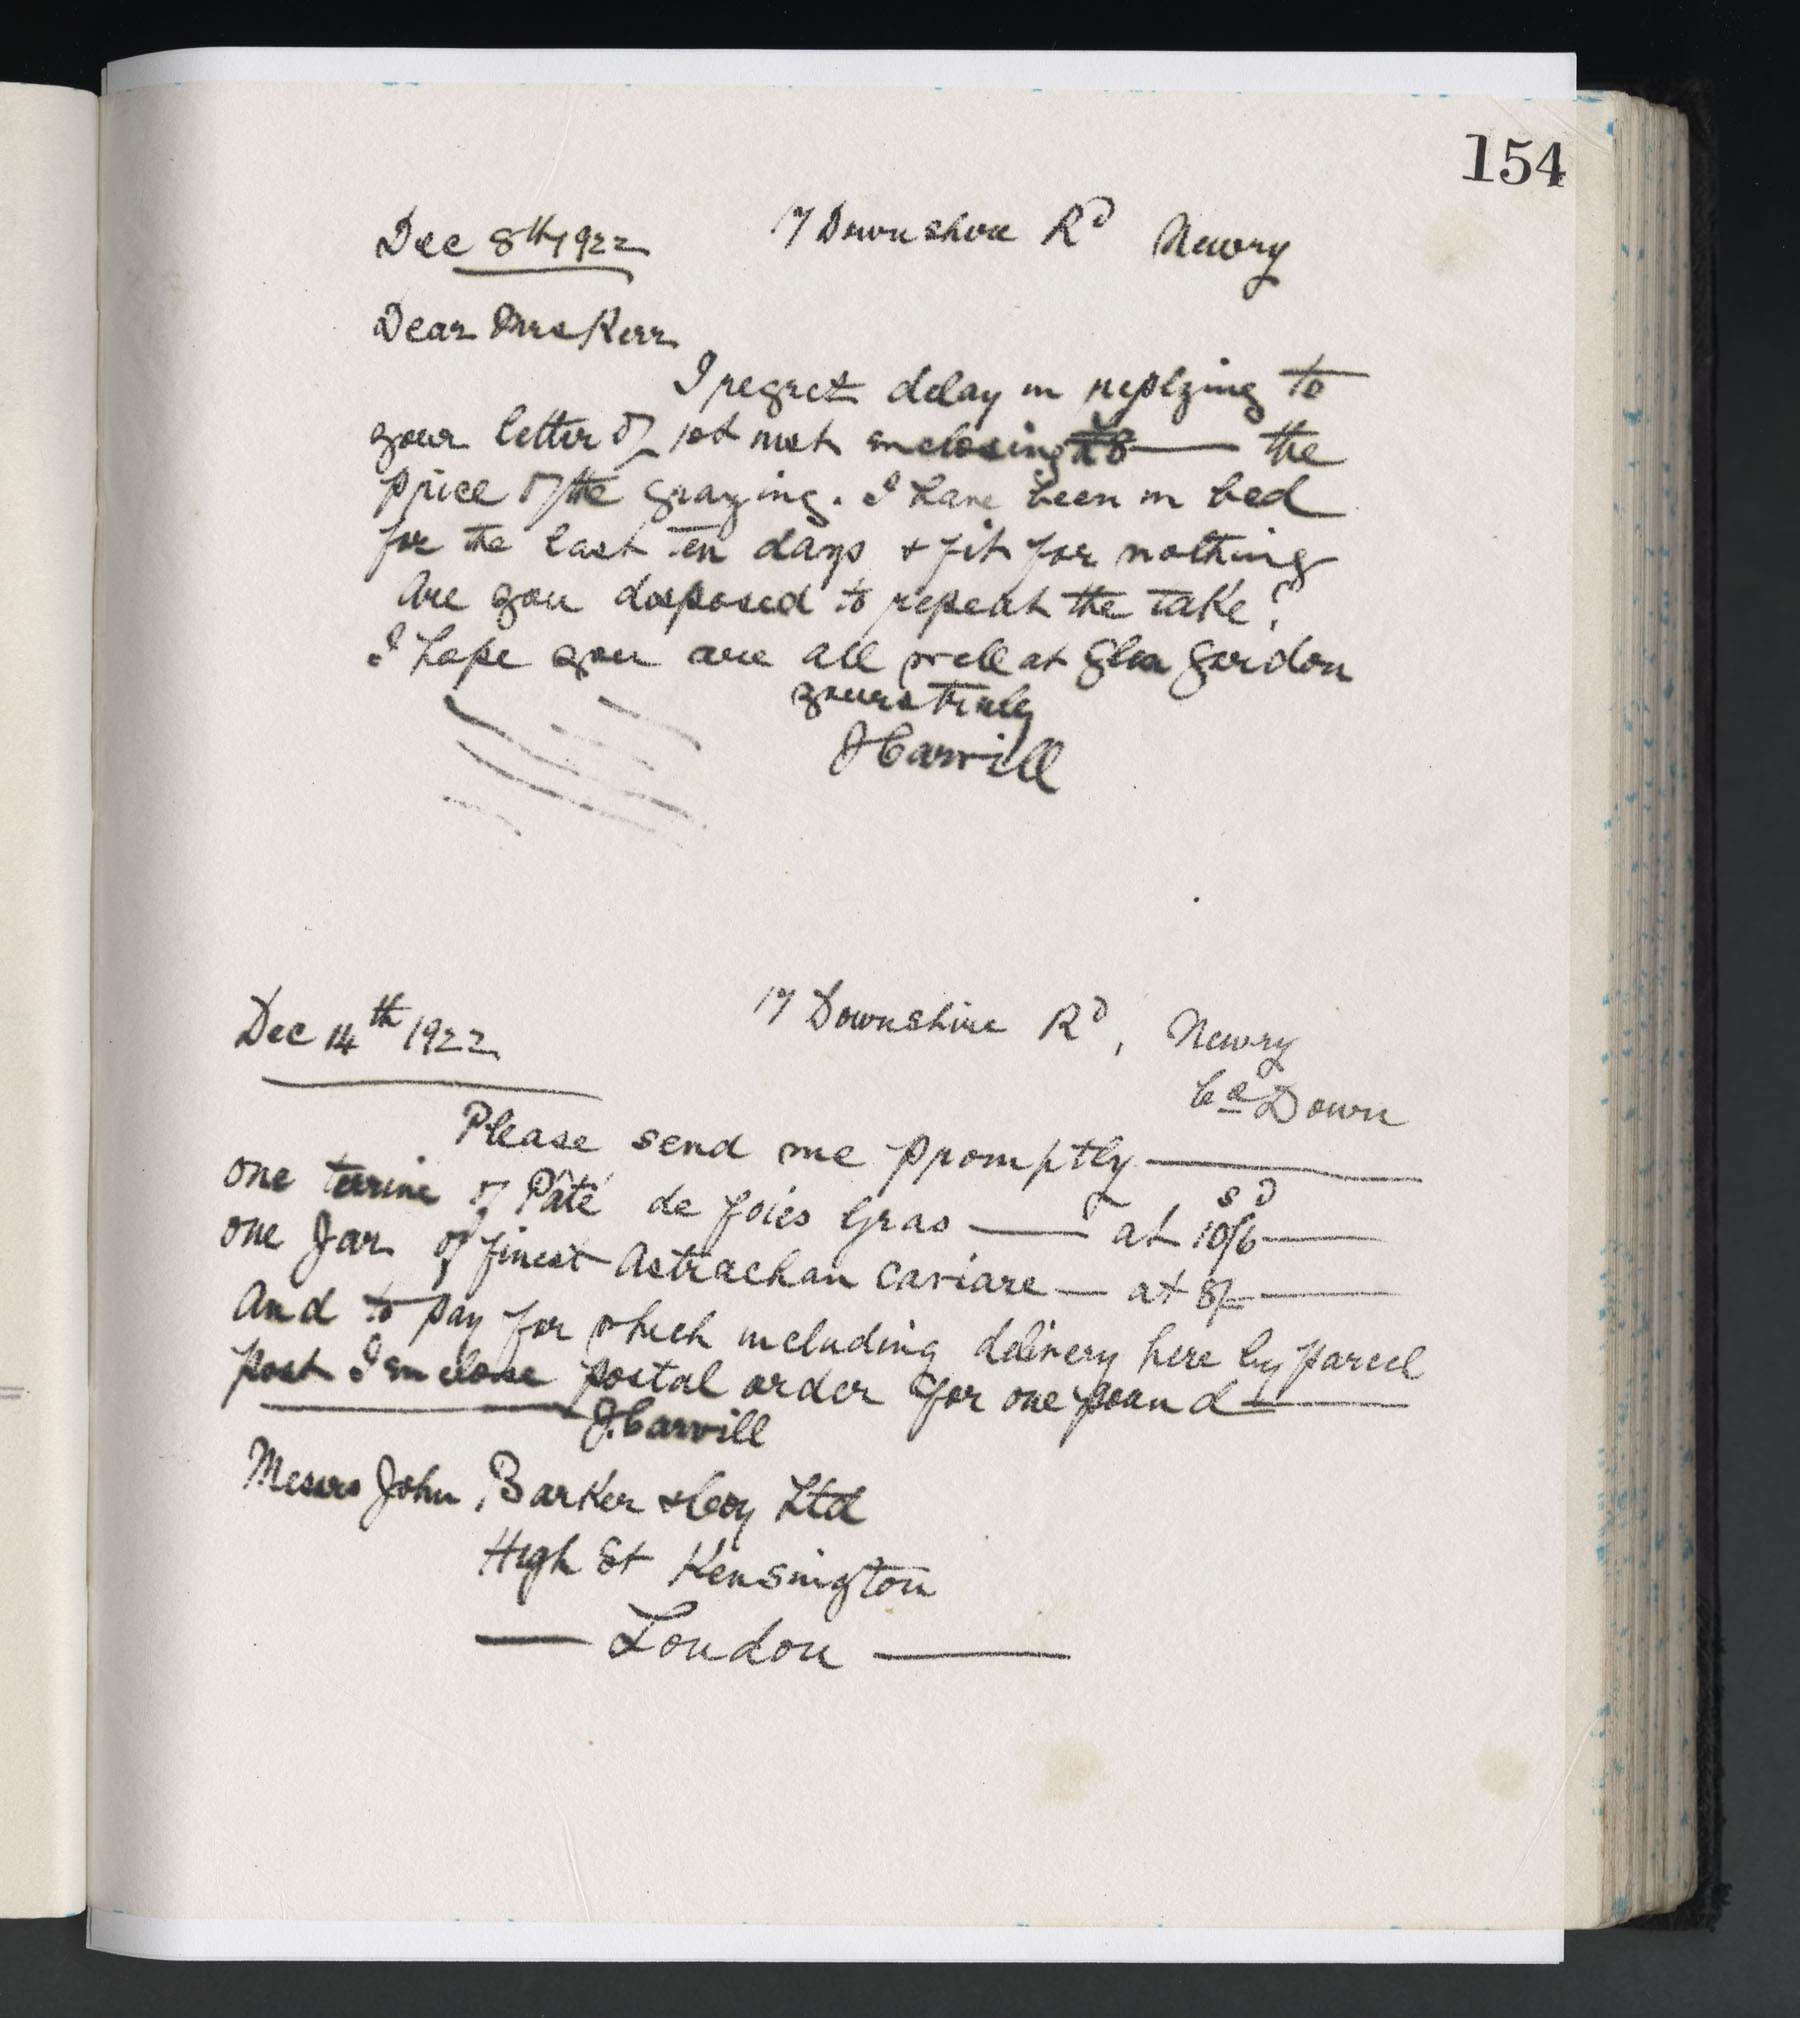 154
Dec 8th 1922 17 Downshire Rd Newry
Dear Mrs Kerr
I regret delay in replying to
your letter of 1st inst enclosing £8 — the
price of the grazing. I have been in bed
for the last ten days & fit for nothing
Are you disposed to repeat the take?
I hope you are all well at Glen Gordon
yours truly
J Carvill
Dec 14th 1922 17 Downshire Rd, Newry
Co Down
Please send me promptly —
one terrine of Pâté de foies Gras — at 10s/6d —
one Jar of finest Astrachan Caviare — at 8/- —
And to pay for which including delivery here by parcel
post I enclose postal order for one pound —
J. Carvill
Messrs John Barker & Coy Ltd
High St Kensington
— London —